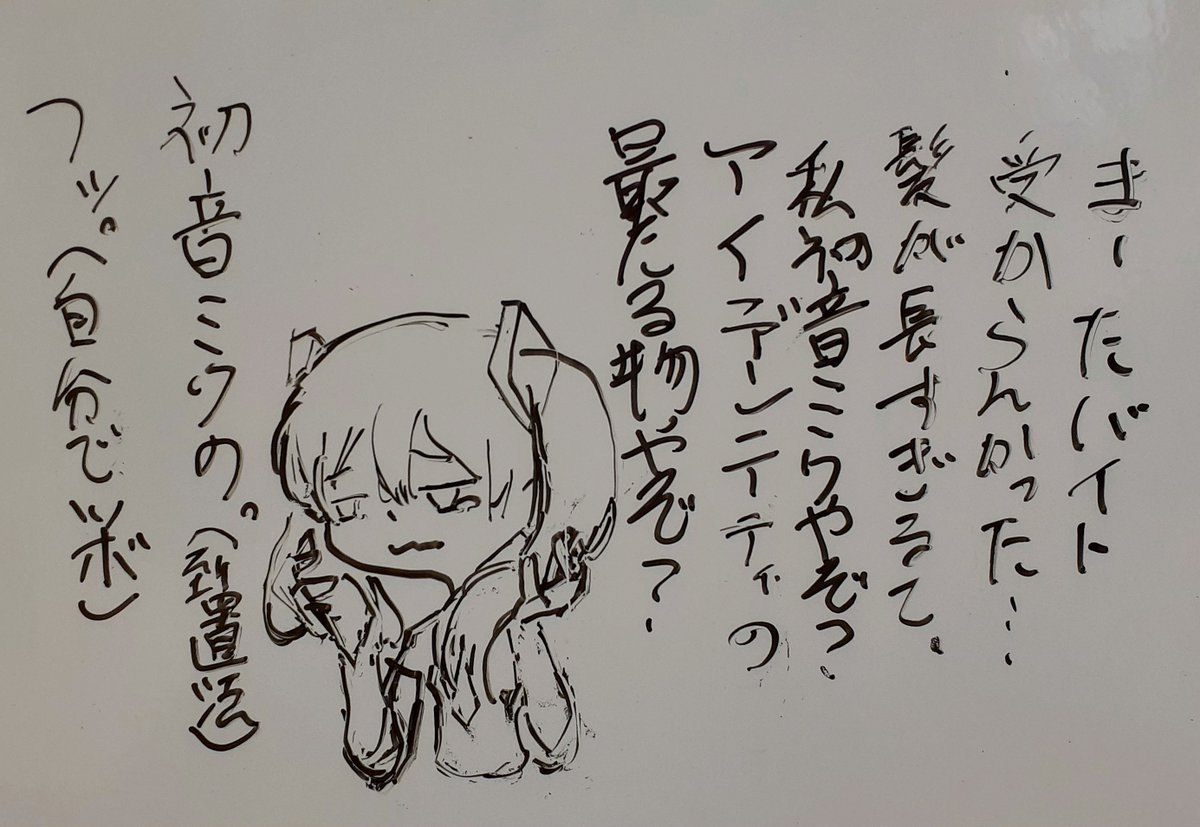 まーたバイト
受からんかった…
髪が長すぎるて。
私初音ミクやぞ?
アイデアンティティの
最たる物やぞ?
初音ミクの。(倒置法)
フッ。(自分でツボ)